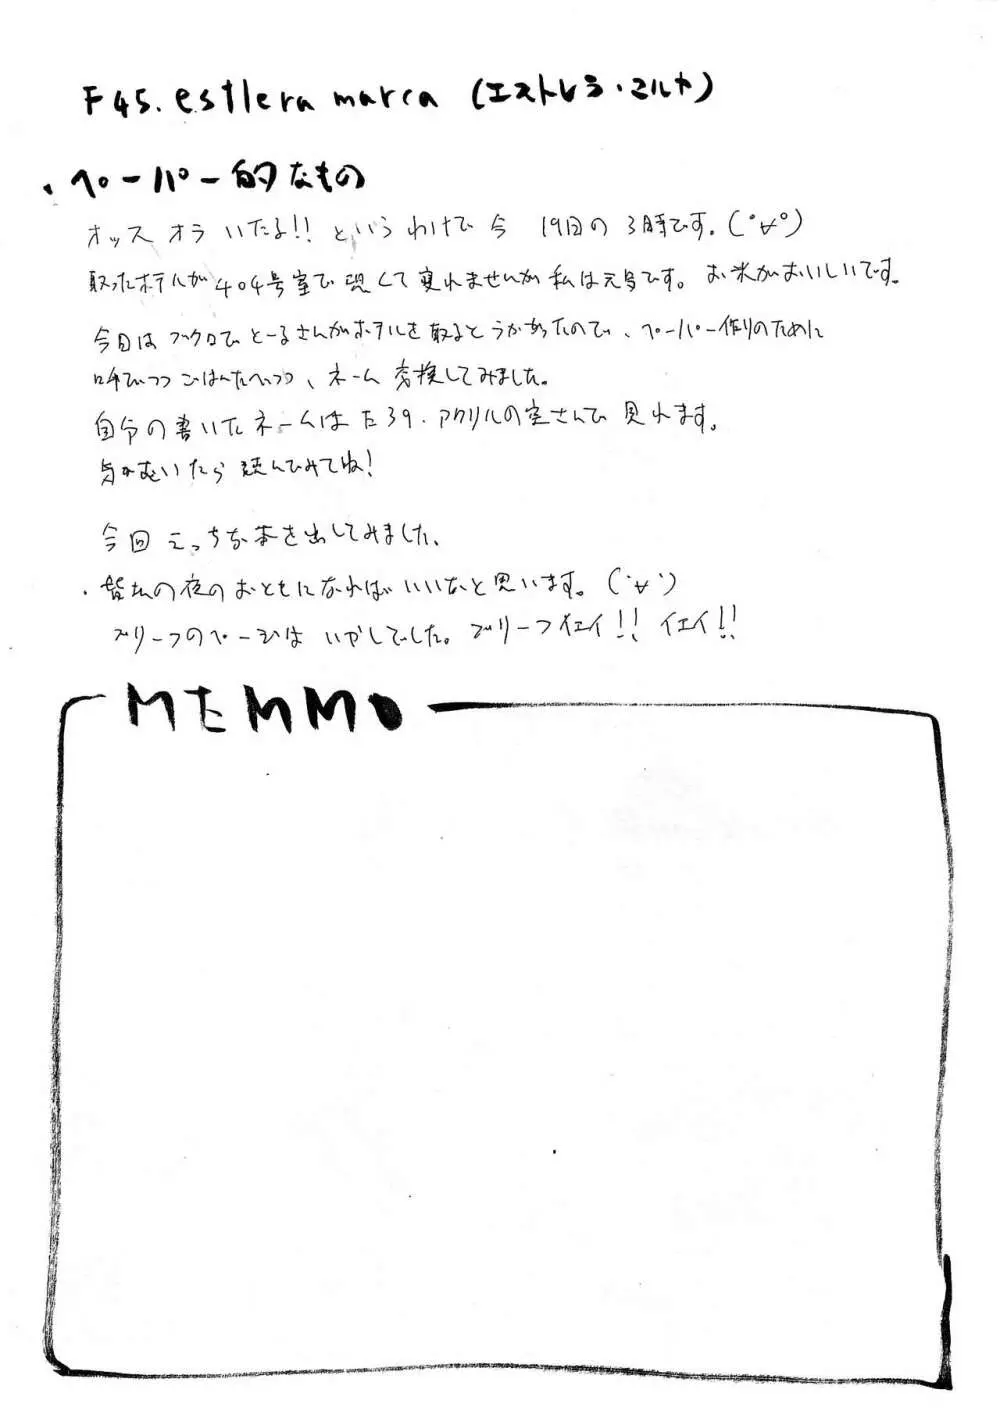 F45. estlera marca (エストレラ・マルカ)
・ペーパー的なもの
オッス オラ いたる!! というわけで 今 19日の 3時です。(°∀°)
取ったホテルが404号室で 恐くて寝れませんが 私は元気です。お米がおいしいです。
今日は ブクロで とーるさんがホテルを取るとうかがったので、ペーパー作りのために
呼びつつ ごはんたべつつ、ネーム 交換してみました。
自分の書いたネームは た39・アクリルの空さんで 見れます。
気がむいたら 読んでみてね!
今回 えっちな本を出してみました。
・皆さんの夜のおともになればいいなと思います。(`∀´)
ブリーフのページは いやしでした。ブリーフイエイ!! イエイ!!
MEMMO